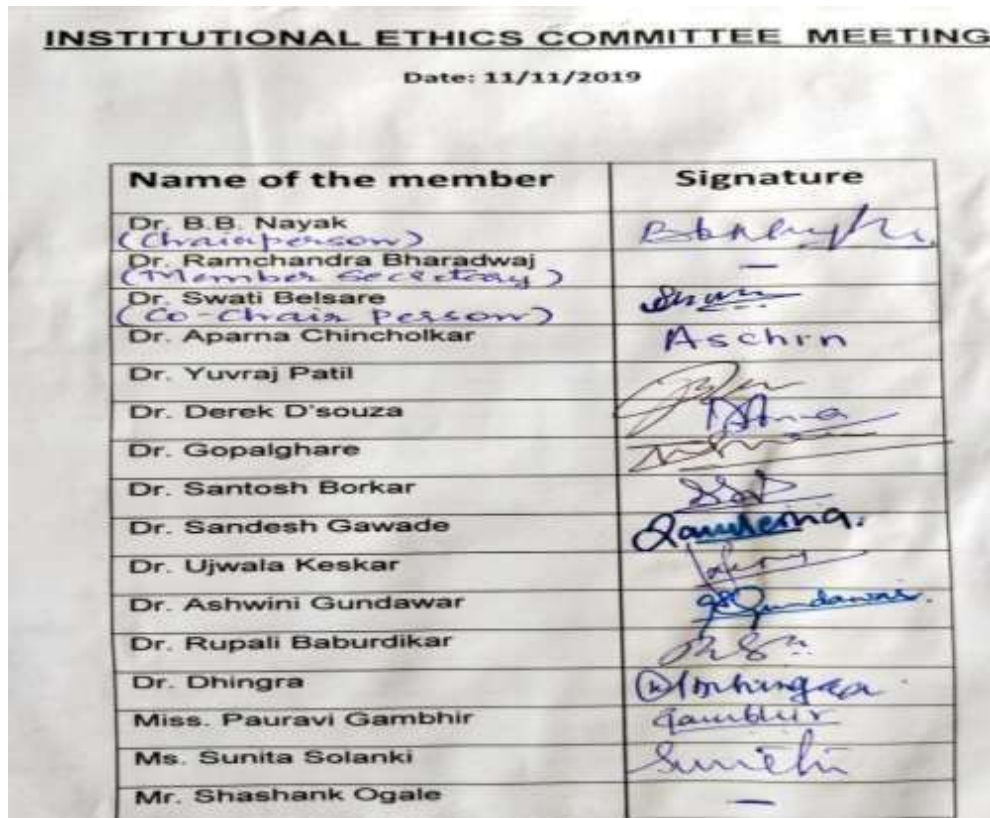 INSTITUTIONAL ETHICS COMMITTEE MEETING
Date: 11/11/2019
Name of the member Signature
Dr. B.B. Nayak
(Chairperson)
Dr. Ramchandra Bharadwaj –
(Member Secretary)
Dr. Swati Belsare
(Co-Chair Person)
Dr. Aparna Chincholkar Aschin
Dr. Yuvraj Patil
Dr. Derek D'souza
Dr. Gopalghare
Dr. Santosh Borkar
Dr. Sandesh Gawade
Dr. Ujwala Keskar
Dr. Ashwini Gundawar Gundawar.
Dr. Rupali Baburdikar
Dr. Dhingra
Miss. Pauravi Gambhir Gambhir
Ms. Sunita Solanki
Mr. Shashank Ogale –